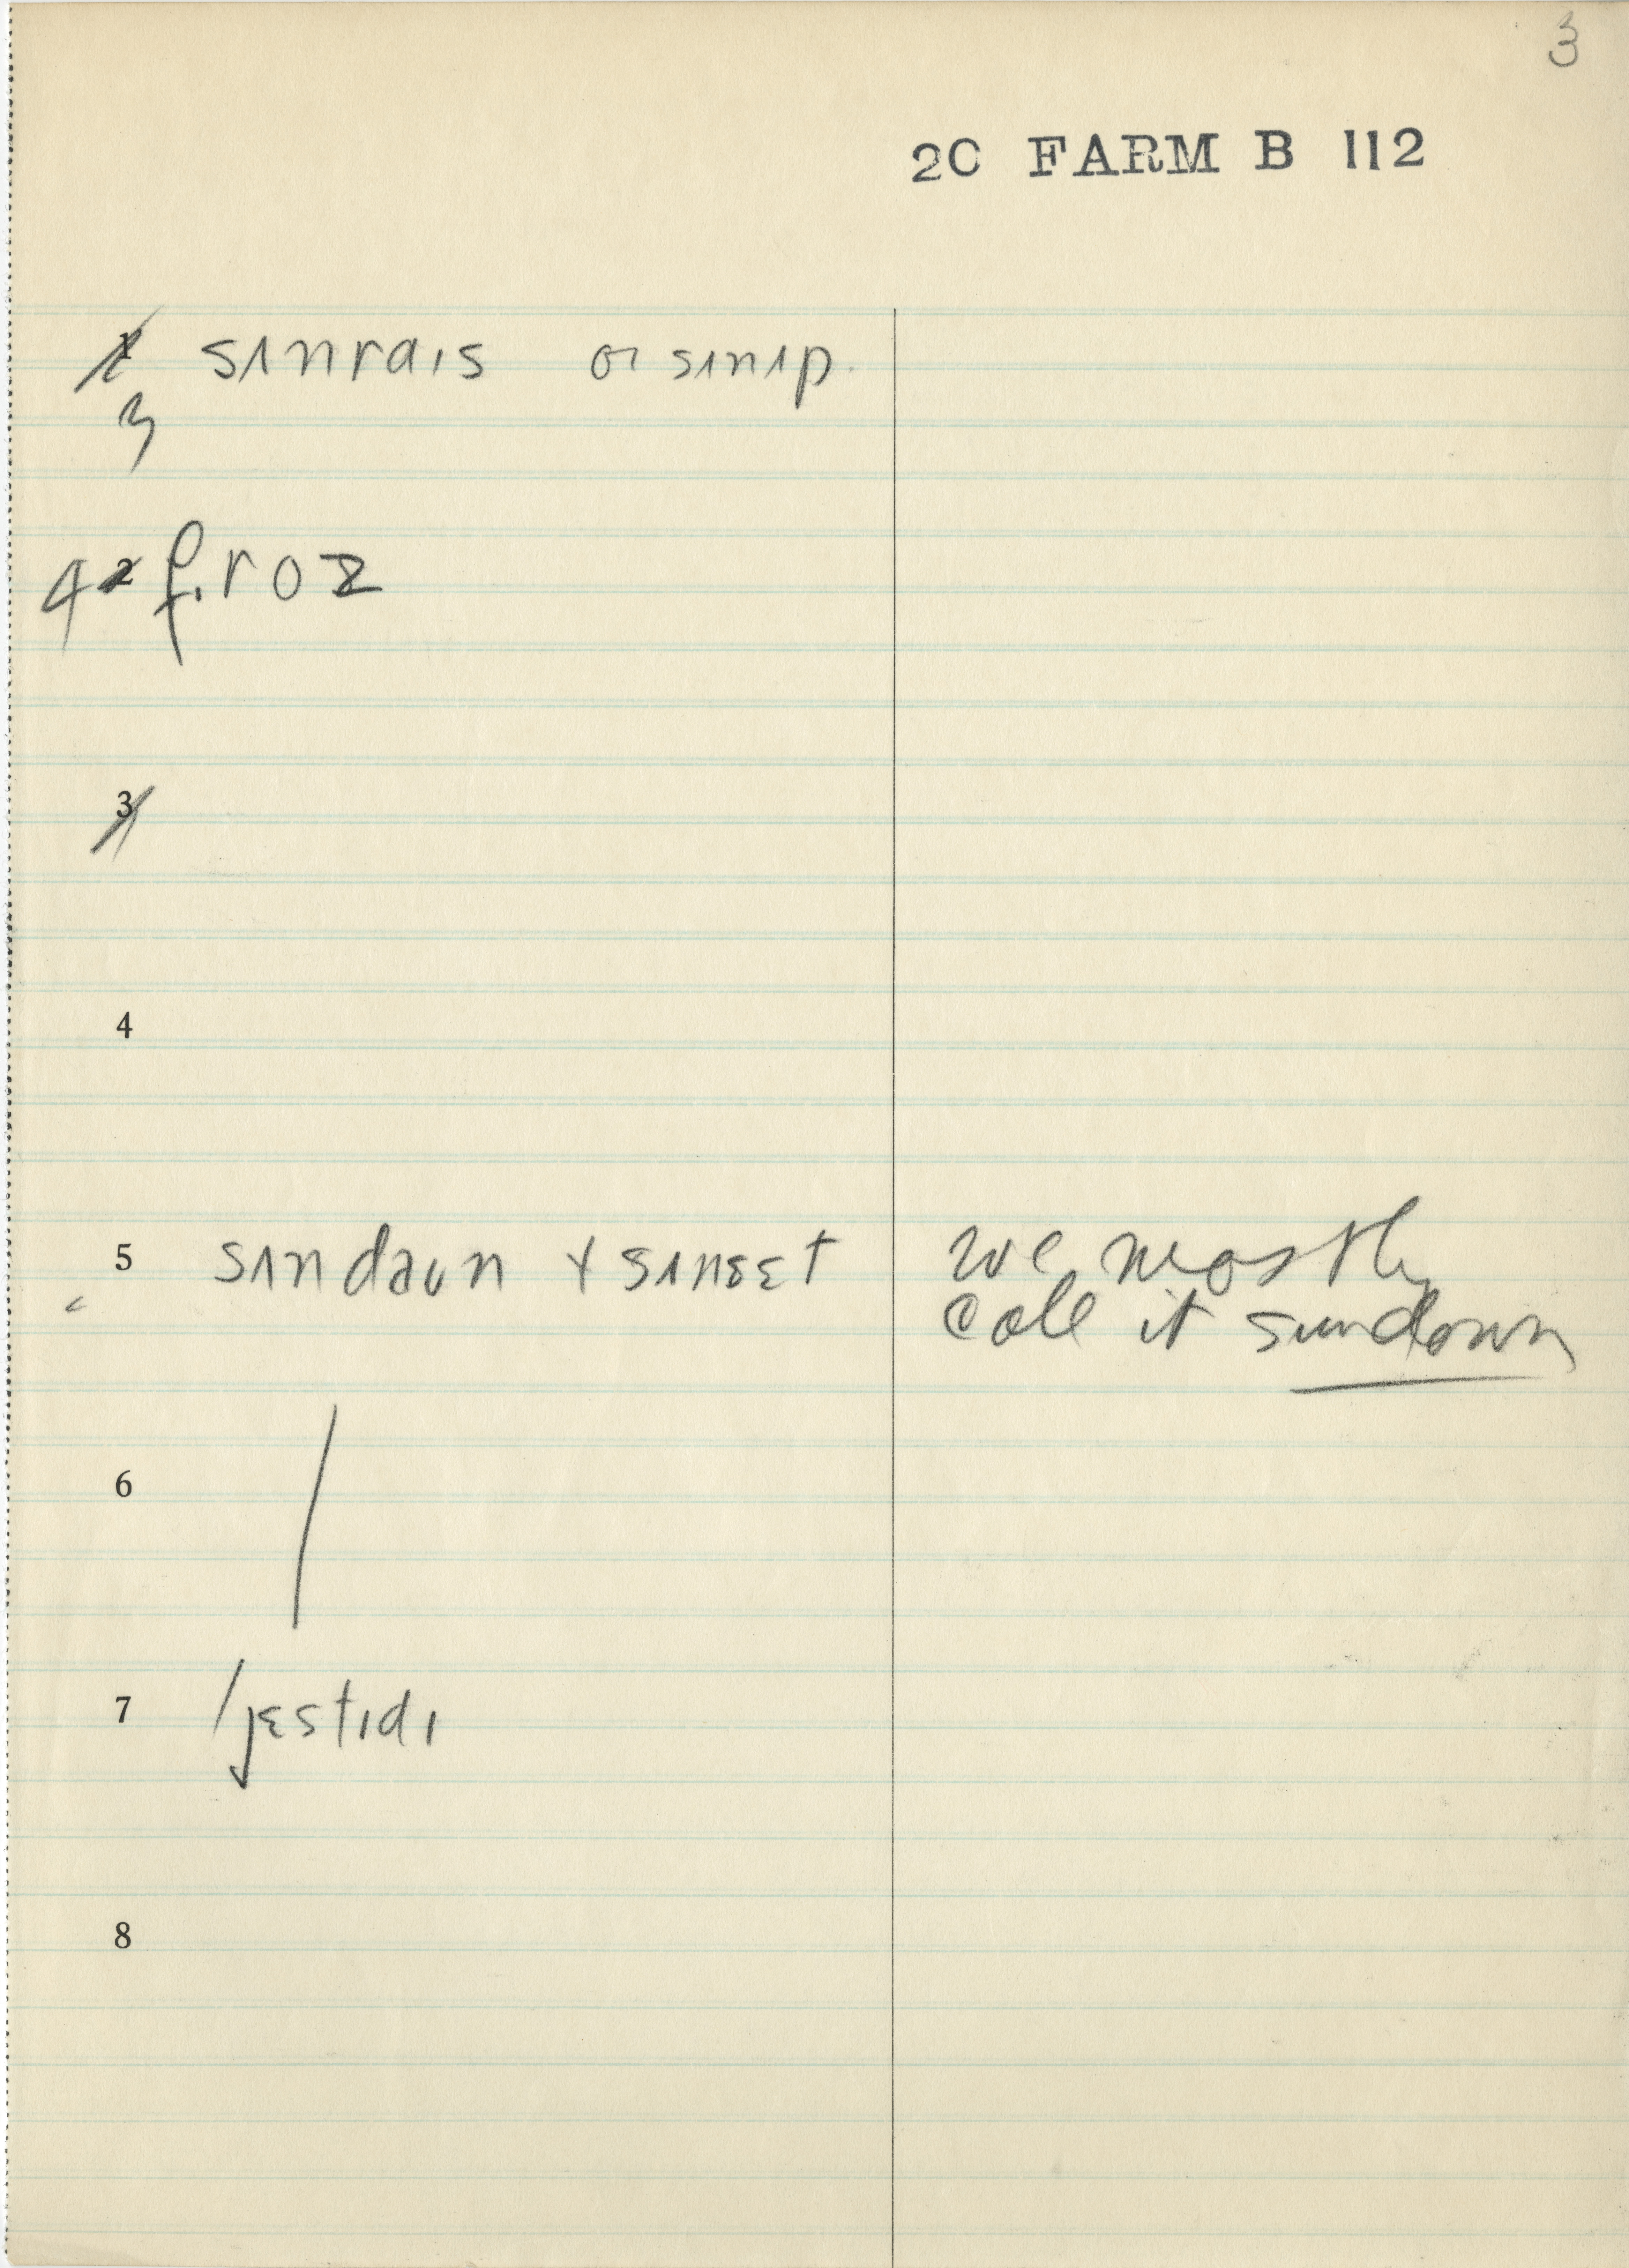 3
20 FARM B 112
1 sʌnraɪs or sʌnʌp.
3
4 2 f.roz
3
4
5 sʌndaʊn + sʌnsɛt we mostly
call it sundown
6
7 /jɛstɪdɪ
8